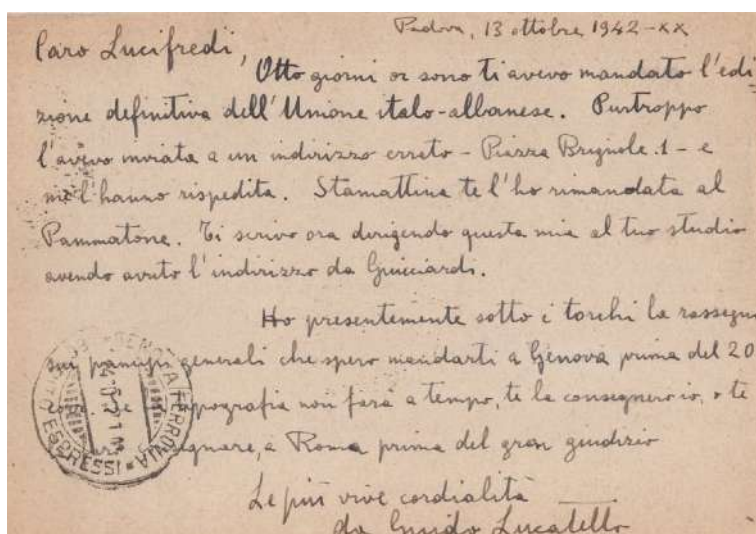 Padova, 13 ottobre 1942-XX
Caro Lucifredi,
Otto giorni or sono ti avevo mandato l'edi-
zione definitiva dell'Unione italo-albanese. Purtroppo
l'avevo inviata a un indirizzo errato - Piazza Brignole 1 - e
me l'hanno rispedita. Stamattina te l'ho rimandata al
Pammatone. Ti scrivo ora dirigendo questa mia al tuo studio
avendo avuto l'indirizzo da Guicciardi.
Ho presentemente sotto i torchi la rassegna
sui principi generali che spero mandarti a Genova prima del 20
tipografia non farà a tempo, te la consegnerò io, o te
a Roma prima del gran giudizio
Le più vive cordialità
da Guido Lucatello
GENOVA FERROVIA
ESPRESSI